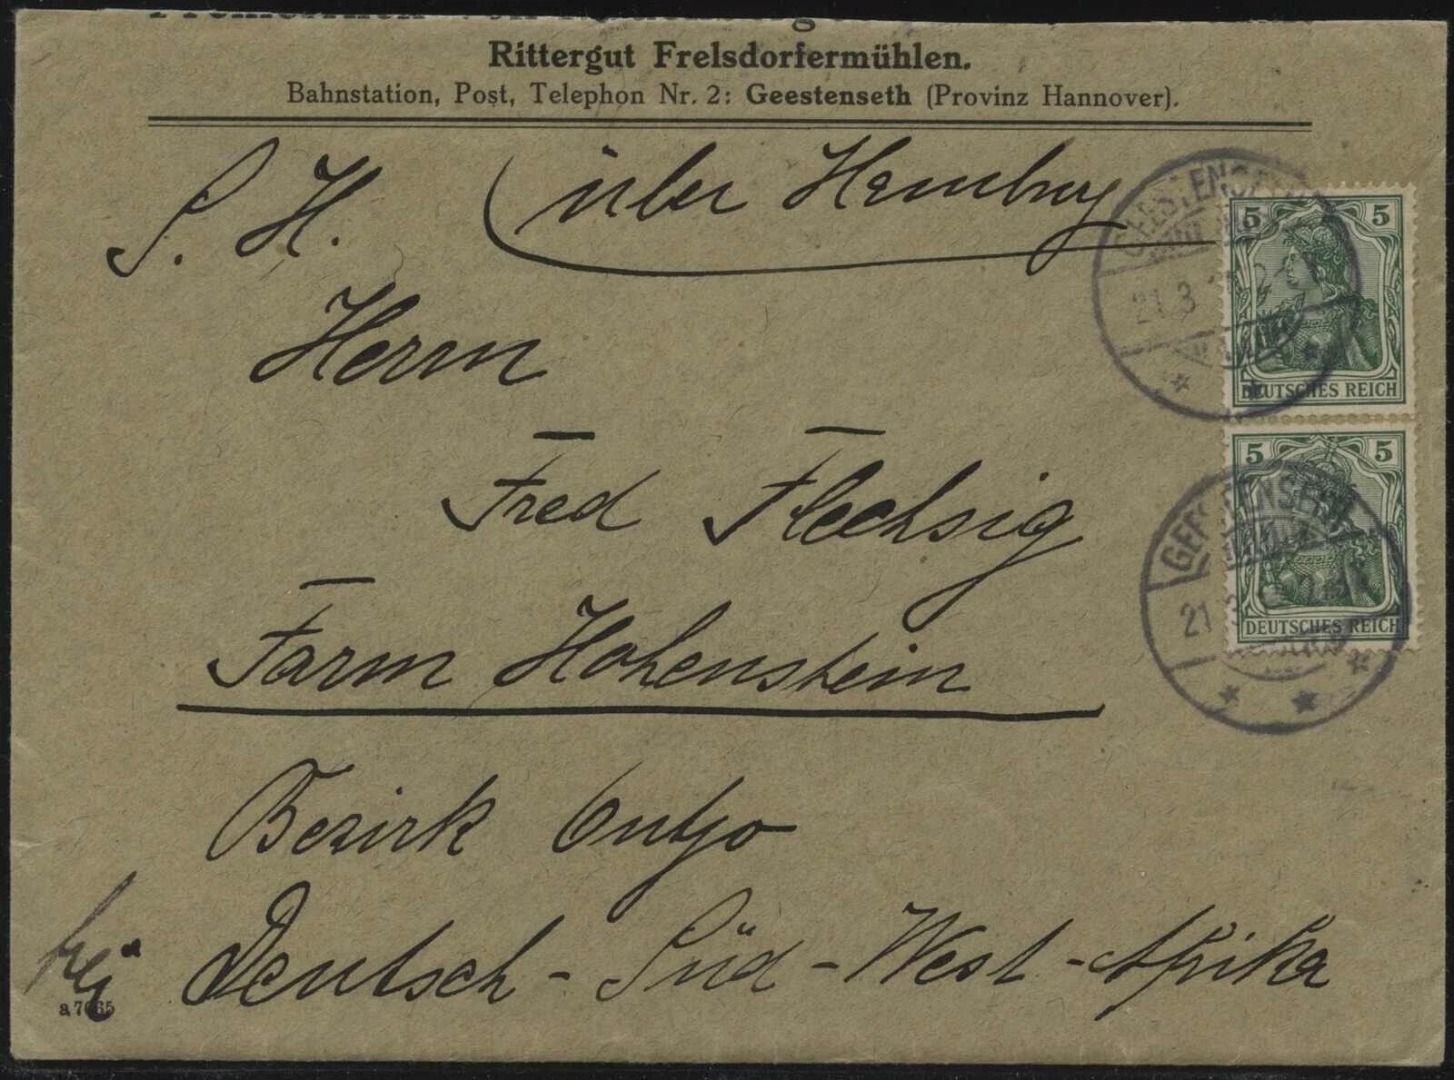 Rittergut Frelsdorfermühlen.
Bahnstation, Post, Telephon Nr. 2: Geestenseth (Provinz Hannover).
S. H. (über Hamburg
Herrn
Fred Flechsig
Farm Hohenstein
Bezirk Outjo
Deutsch-Süd-West-Afrika
frei
a 7665
5 5
DEUTSCHES REICH
5 5
DEUTSCHES REICH
GEESTENSETH
21.3
GEESTENSETH
21.3